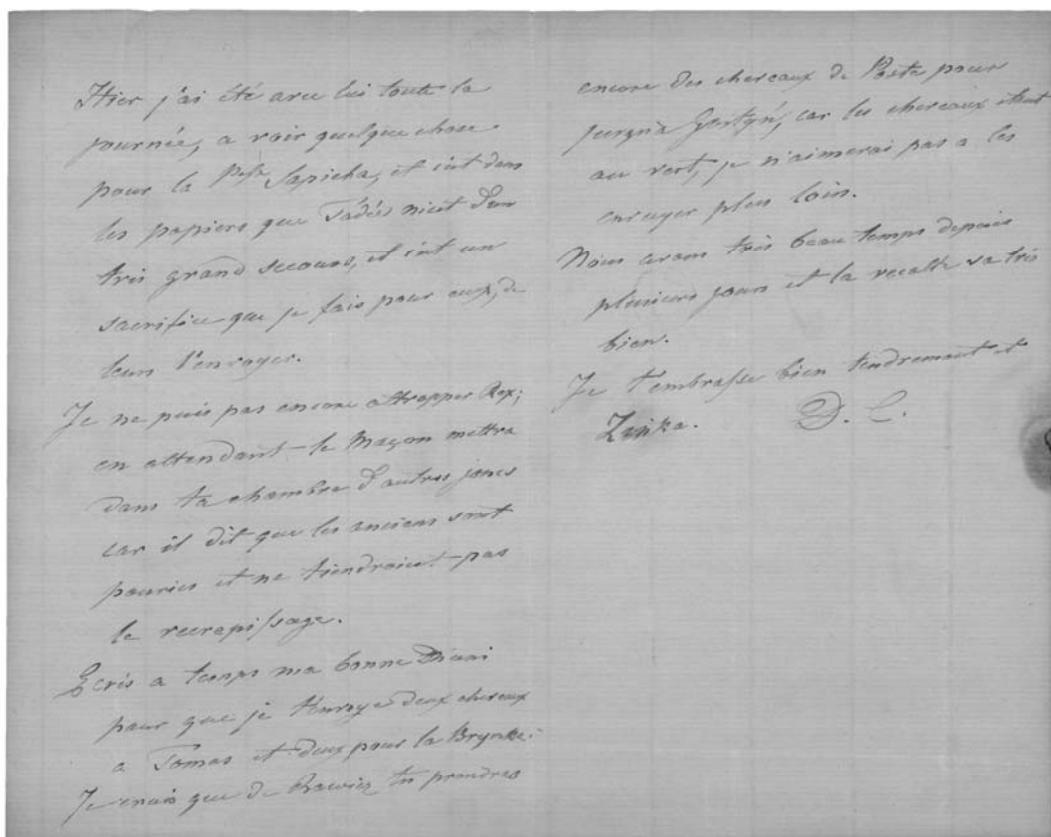 Hier j'ai été avec lui toute la
journée, a voir quelque chose
pour la Psse Sapieha, et c'est dans
les papiers que Tadés m'est d'un
très grand secours, et c'est un
sacrifice que je fais pour eux, de
leur l'envoyer.
Je ne puis pas encore attrapper Rex;
en attendant le Maçon mettra
dans ta chambre d'autres joncs
car il dit que les anciens sont
pouries et ne tiendroient pas
le recrepissage.
Ecris a temps ma bonne
pour que je t'envoye deux chevaux
a Tomas et deux pour la Brynka.
Je crois que de Rawicz tu prendras
encore des chevaux de Poste pour
jusqu'à Gostyń, car les chevaux étant
au vert, je n'aimerai pas a les
envoyer plus loin.
Nous avons très beau temps depuis
plusieurs jours et la recolte va très
bien.
Je t'embrasse bien tendrement et
Zosika. D. C.